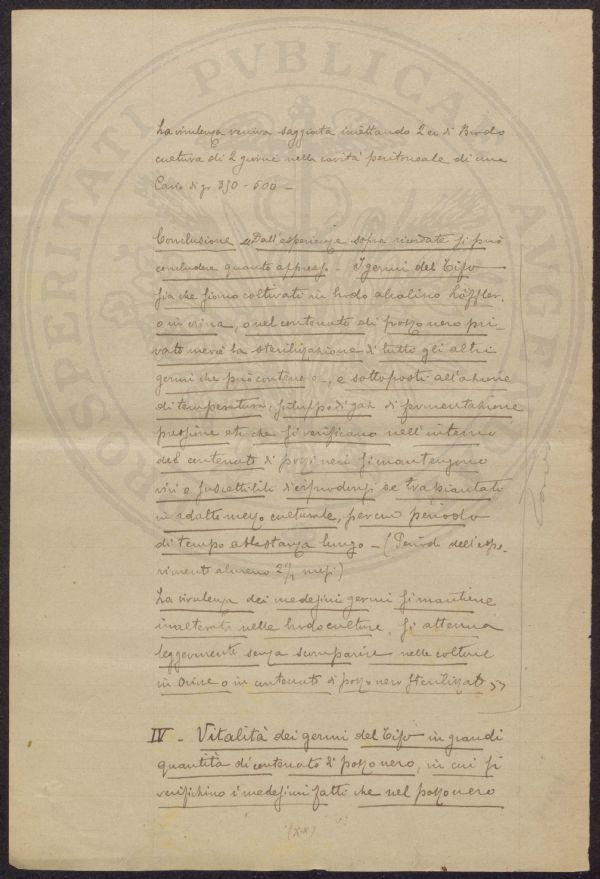 La virulenza veniva saggiata iniettando 2 cc di Brodo
cultura di 2 giorni nella cavità peritoneale di una
Cavia di gr. 350 - 500 —
Conclusione „ Dall'esperienze sopra ricordate si può
concludere quanto appresso — I germi del Tifo
sia che siano coltivati in brodo alcalino Löffler,
o in orina, o nel contenuto di pozzo nero pri-
vato mercè la sterilizzazione di tutti gli altri
germi che può contenere, e sottoposti all'azione
di temperatura, sviluppo di gaz di fermentazione
pressione etc che si verificano nell'interno
del contenuto di pozzi neri si mantengono
vivi e suscettibili di riprodursi se trapiantati
in adatto mezzo culturale, per un periodo
di tempo abbastanza lungo — (Periodo dell'espe-
rimento almeno 2 1/2 mesi)
La virulenza dei medesimi germi si mantiene
inalterata nelle brodoculture, si attenua
leggermente senza scomparire nelle colture
in orine o in contenuti di pozzo nero sterilizzati »
IV - Vitalità dei germi del Tifo in grandi
quantità di contenuto di pozzo nero, in cui si
verifichino i medesimi fatti che nel pozzo nero
(xx)
PROSPERITATI PVBLICAE AVGENDAE